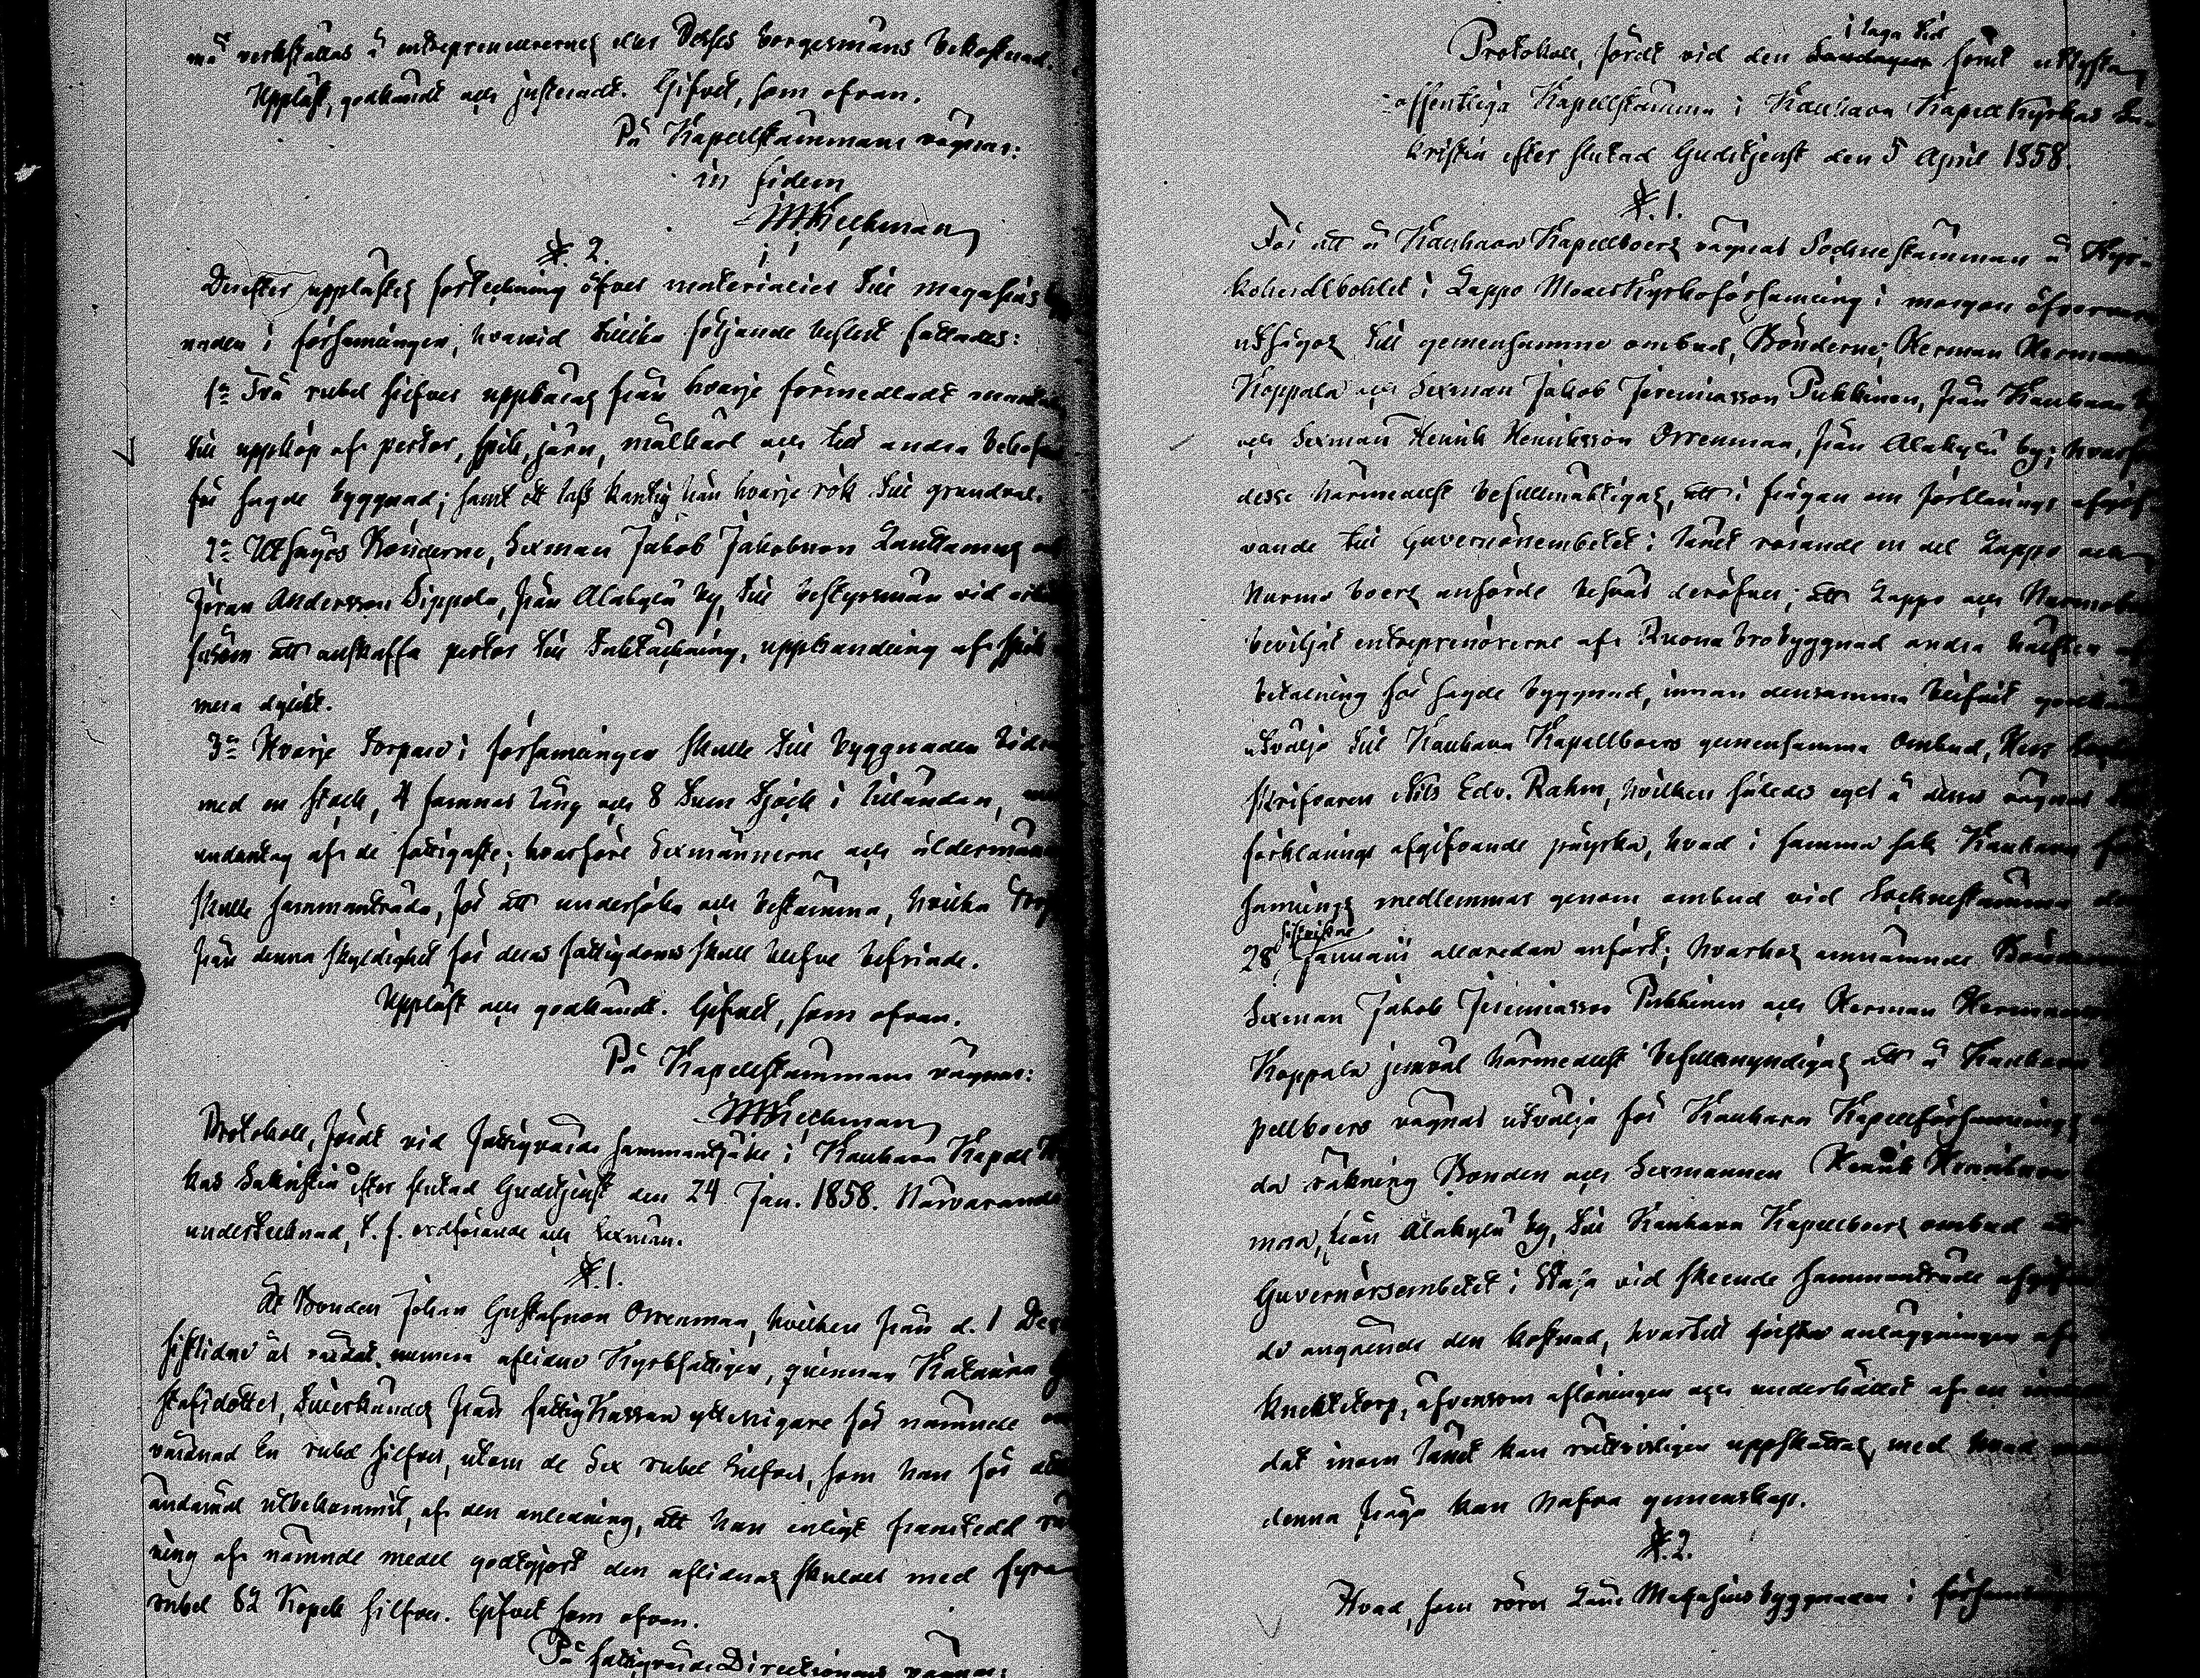 må verkställas å entrepreneurernes eller Desses borgesmäns bekostnad.
Uppläst, godkändt och justeradt. Gifvet, som ofvan.
På Kapellstämmans vägnar:
in fidem
§. 2.
Derefter upplästes förteckning öfver materialier till magasins
naden i församlingen, hvarvid tillika följande beslut fattades:
1o Två rubel silfver uppbäras från hvarje förmedladt mantal
till uppköp af pertor, spik, järn, målkarl och till andra behof
för sagde byggnad; samt ett lass från hvarje rök till grundval.
2o Utsågos Bönderne, Sexman Jakob Jakobsson Lauttamus och
Jöran Andersson Sippola, från Alakylä by, till bestyrsmän vid
såsom att anskaffa pertor till taktäckning, upphandling af spik
mera dylikt.
3o Hvarje torpare i församlingen skulle till byggnaden bidra
med en stock, 4 famnar lång och 8 tum tjock i lilländan, med
undantag af de fattigaste; hvarföre Sexmännerne och åldermännen
skulle sammanträda, för att undersöka och bestämma, hvilka torp
från denna skyldighet för deras fattigdoms skull blefve befriade.
Uppläst och godkändt. Gifvet, som ofvan.
På Kapellstämmans vägnar:
Protokoll, fördt vid fattigvårds sammanträde i Kauhava Kapell
kas Sakristia efter slutad Gudstjenst den 24 Jan. 1858. Närvarande
undertecknad, t. f. ordförande och Sexmän.
§. 1.
Åt Bonden Johan Gustafsson Orrenmaa, hvilken från d. 1 Dec.
sistlidne år vårdat numera aflidne Kyrkfattigen, qvinnan Katarina
stafsdotter, tillerkändes från fattigkassan ytterligare för nämnde
vårdnad En rubel silfver, utom de Sex rubel silfver, som han för
ändamål utbekommit, af den anledning, att han enligt framtedd räk
ning af nämnde medel godtgjort den aflidnas skulder med fyra
rubel 82 Kopek silfver. Gifvet som ofvan.
På fattigvårds Directionens vägnar:
i laga tid
Protokoll, fördt vid den förut utlysta
offentliga Kapellstämma i Kauhava Kapell Kyrkas Sa-
kristia efter slutad Gudstjenst den 5 April 1858.
§. 1.
För att å Kauhava Kapellboers vägnar Sockne stämman å Kyr-
koherdebohlet i Lappo Moderkyrkoförsamling i morgon öfvervara
utsågos till gemensamme ombud, Bönderne; Herman Hermansson
Koppala och Sexman Jakob Jeremiasson Pukkinen, från Kauhava by
och Sexman Henrik Henriksson Orrenmaa, från Alakylä by; hvarför
desse härmedelst befullmäktigas, att i frågan om förklarings afgif
vande till Guvernörsembetet i länet rörande en del Lappo och
Härmä boers anförde besvär deröfver, att Lappo och Härmä
beviljat entreprenörerne af Ruona brobyggnad andra hälften af
betalning för sagde byggnad, innan densamma blifvit
utvälja till Kauhava Kapellboers gemensamma ombud, Herr
skrifvaren Nils Edv. Rahm, hvilken således eger å deras vägnar
förklarings afgifvande påyrka, hvad i samma sak Kauhava för
samlings medlemmar genom ombud vid Sockne stämma den
sistvikne
28 Januarii allaredan anfört; hvarhos omnämnde Bönder
Sexman Jakob Jeremiasson Pukkinen och Herman Hermansson
Koppala jemväl härmedelst befullmyndigas att å Kauhava
pellboers vägnar utvälja för Kauhava Kapellförsamlings
da räkning Bonden och Sexmannen Henrik Henriksson
maa, från Alakylä by, till Kauhava Kapellboers ombud att
Guvernörsembetet i Wasa vid skeende sammanträde afgif
de angående den kostnad, hvartill första anläggningen af
knektetorp, äfvensom aflöningen och underhållet af en
dat inom länet kan rättvisligen uppskattas, med hvad
denna fråga kan hafva gemenskap.
§. 2.
Hvad, som rörer Låne Magasins byggnaden i församlingen